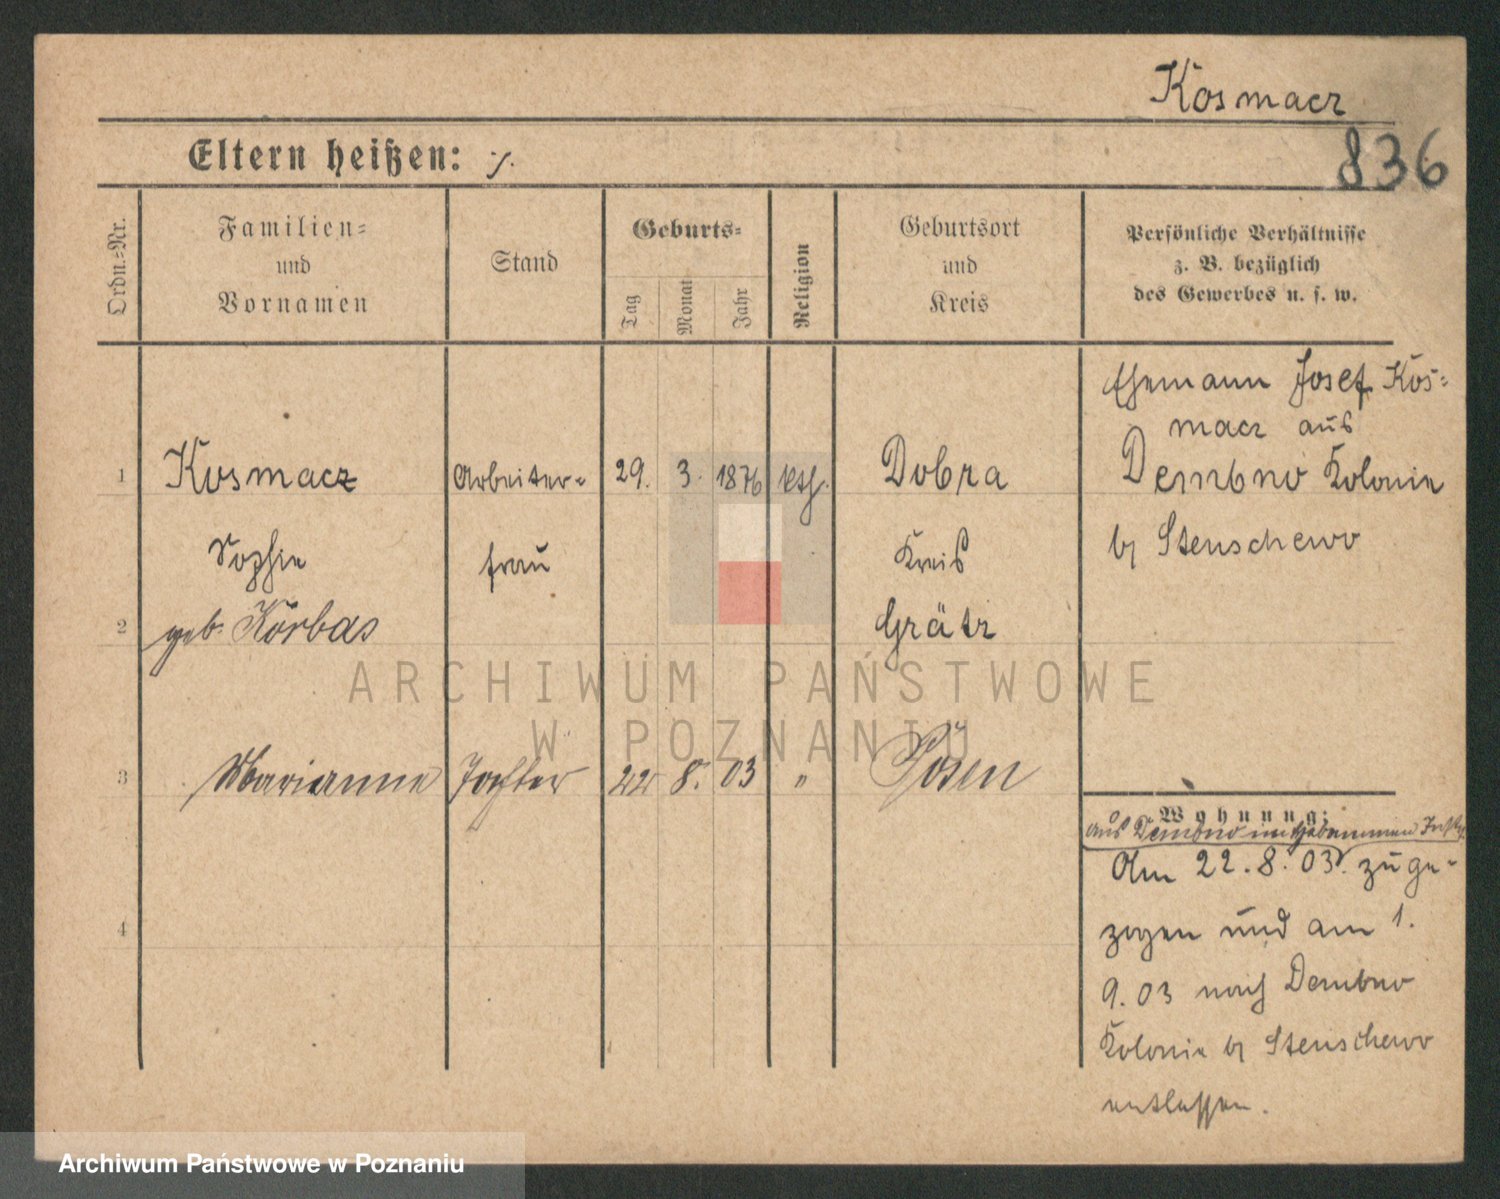 Kosmacz
836
Eltern heißen: ./.
Ordn.=Nr.
Familien=
und
Vornamen
Stand
Geburts=
Tag
Monat
Jahr
Religion
Geburtsort
und
Kreis
Persönliche Verhältnisse
z. B. bezüglich
des Gewerbes u. s. w.
1 Kosmacz Arbeiter= 29. 3. 1876 kth. Dobra
Sophie frau Kreis
2 geb. Korbas Grätz
3 Marianne Tochter 22 8. 03 " Posen
4
Ehemann Josef Kos=
macz aus
Dembno Kolonie
b/ Stenschewo
Wohnung:
aus Dembno in Hebammen Inst.
Am 22. 8. 03. zuge=
zogen und am 1.
9. 03 nach Dembno
Kolonie b/ Stenschewo
entlassen.
ARCHIWUM PAŃSTWOWE
W POZNANIU
Archiwum Państwowe w Poznaniu